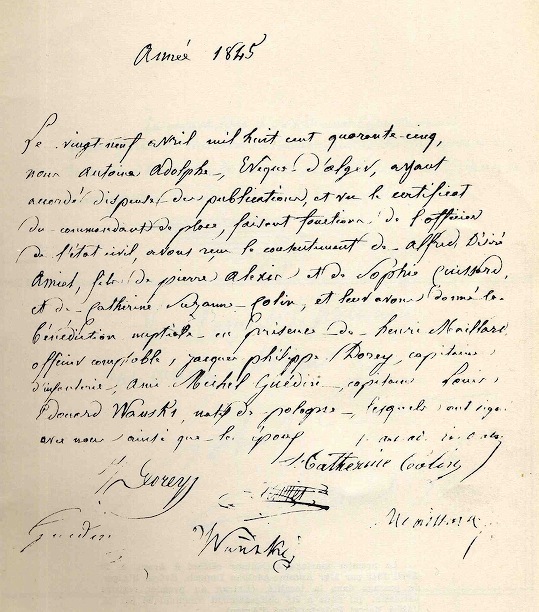 Année 1845
Le vingt neuf avril mil huit cent quarante cinq,
nous Antoine Adolphe, Evêque d'alger, ayant
accordé dispense des publications, et vu le certificat
du commandant de place, faisant fonctions de l'officier
de l'état civil, avons reçu le consentement de Alfred Désiré
Amiet, fils de pierre Alexis et de Sophie Cuissard,
et de Catherine Suzanne Colin, et leur avons donné la
bénédiction nuptiale en présence de henri Maillard
officier comptable, jacques philippe Dorey, capitaine
d'infanterie, Ami Michel Guédin, capitaine Louis
Edouard Wanski, natif de pologne, lesquels ont signé
avec nous ainsi que les époux
Catherine Colin
Dorey
Guédin
Wanski
Maillard